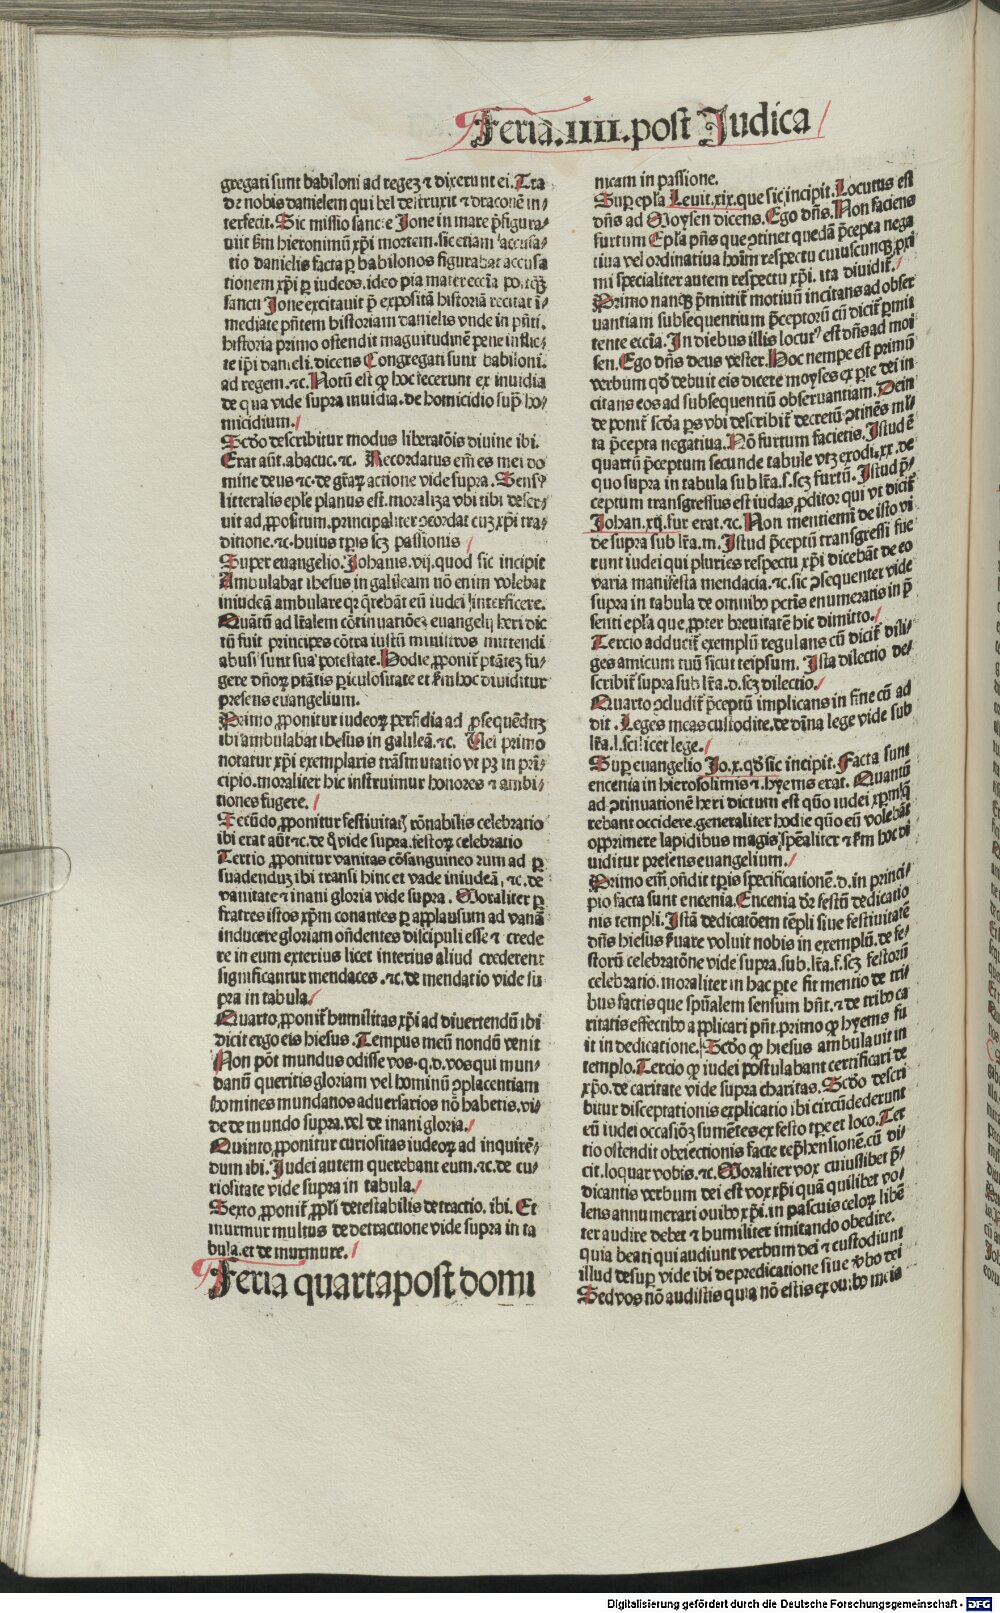 Feria.IIII.post Judica
gregati sunt babiloni ad regeʒ ⁊ dixerunt ei. Tra
de nobis danielem qui bel destruxit ⁊ draconē in⸗
terfecit. Sic missio sancte Jone in mare p̄figura⸗
uit s̄m hieronimū xp̄i mortem. sic etiam accusa⸗
tio danielis facta ꝑ babilonos figurabat accusa
tionem xp̄i ꝑ iudeos. ideo pia mater eccl̄ia postqꝫ
sancti Jone excitauit p̄ expositā historiā recitat ī⸗
mediate p̄ntem historiam danielis vnde in p̄nti.
historia primo ostendit magnitudinē pene inflic⸗
te ip̄i danieli. dicens Congregati sunt babiloni.
ad regem. ⁊c. Notū est ꝙ hoc fecerunt ex inuidia
de qua vide supra inuidia. de homicidio sup̄ ho⸗
micidium.
Scd̄o describitur modus liberatōis diuine ibi.
Erat aūt. abacuc. ⁊c. Recordatus em̄ es mei do
mine deus ⁊c. de gr̄aꝝ actione vide supra. Sensꝰ
litteralis ep̄le planus est. moraliza vbi tibi deser⸗
uit ad ꝓpositum. principaliter ɔcordat cuꝫ xp̄i tra⸗
ditione. ⁊c. huius tꝑis scꝫ passionis
Super euangelio. Johanis. vij. quod sic incipit
Ambulabat ihesus in galileam nō enim volebat
in iudeā ambulare qꝛ q̄rebāt eū iudei interficere.
Quātū ad lr̄alem cōtinuatiōeꝫ euangelij heri dic
tū fuit principes cōtra iustū ministros mittendi
abusi sunt sua potestate. Hodie ꝓponit̄ ptāteꝫ fu⸗
gere dn̄oꝝ ptātis ꝑiculositate et s̄m hoc diuiditur
presens euangelium.
Primo ꝓponitur iudeoꝝ perfidia ad ꝓsequēduꝫ
ibi ambulabat ihesus in galileā. ⁊c. Uel primo
notatur xp̄i exemplaris trāsmutatio vt pꝫ in prī⸗
cipio. moraliter hic instruimur honores ⁊ ambi⸗
tiones fugere.
Secūdo ꝓponitur festiuitatꝭ rōnabilis celebratio
ibi erat aūt ⁊c. de q̄ vide supra. festoꝝ celebratio
Tertio ꝓponitur vanitas cōsanguineo rum ad ꝑ
suadenduꝫ ibi transi hinc et vade in iudeā, ⁊c. de
vanitate ⁊ inani gloria vide supra. Moraliter ꝑ
fratres istos xp̄m conantes ꝑ applausum ad vanā
inducere gloriam on̄dentes discipuli esse ⁊ crede
re in eum exterius licet interius aliud crederent
significantur mendaces. ⁊c. de mendatio vide su
pra in tabula.
Quarto ꝓponit̄ humilitas xp̄i ad diuertendū ibi
dicit ergo eis hiesus. Tempus meū nondū venit
Non pōt mundus odisse vos. q. d. vos qui mun⸗
danū queritis gloriam vel hominū ɔplacentiam
homines mundanos aduersarios nō habetis. vi⸗
de de mundo supra. vel de inani gloria.
Quinto ꝓponitur curiositas iudeoꝝ ad inquirē⸗
dum ibi. Judei autem querebant eum. ⁊c. de cu⸗
riositate vide supra in tabula.
Sexto ꝓponit̄ ꝓpl̄i detestabilis detractio. ibi. Et
murmur multus de detractione vide supra in ta
bula. et de murmure.
Feria quarta post domi
nicam in passione.
Sup ep̄la Leuit. xix. que sic incipit. Locutus est
dn̄s ad Moysen dicens. Ego dn̄s. Non faciens
furtum Ep̄la p̄ns que ɔtinet quedā p̄cepta nega
tiua vel ordinatiua hoīm respectu cuiuscunqꝫ ꝓxi
mi specialiter autem respectu xp̄i. ita diuidit̄.
Primo nanqꝫ p̄mittit̄ motiuū incitans ad obser
uantiam subsequentium p̄ceptorū cū dicit̄ ꝑmit
tente eccl̄ia. In diebus illis locutꝰ est dn̄s ad moi
sen. Ego dn̄s deus vester. Hoc nempe est primū
verbum qd̄ debuit eis dicere moyses ex ꝑte dei in
citans eos ad subsequentiū obseruantiam. Dein
de ponit̄ scd̄a ꝑs vbi describit̄ decretū ɔtinēs ml̄
ta p̄cepta negatiua. Nō furtum facietis. Istud ē
quartū p̄ceptum secunde tabule vtꝫ exodi. xx. de
quo supra in tabula sub lr̄a. f. scꝫ furtū. Istud p̄⸗
ceptum transgressus est iudas ꝓditor qui vt dicit̄
Johan. xij. fur erat. ⁊c. Non mentiemī de isto vi
de supra sub lr̄a. m. Istud p̄ceptū transgressi fue
runt iudei qui pluries respectu xp̄i dicebāt de eo
varia manifesta mendacia. ⁊c. sic ɔsequenter vide
supra in tabula de omnibꝰ pctīs enumeratis in p̄
senti ep̄la que ꝓpter breuitatē hic dimitto.
Tercio adducit̄ exemplū regulans cū dicit̄ dili⸗
ges amicum tuū sicut teipsum. Ista dilectio de⸗
scribit̄ supra sub lr̄a. d. scꝫ dilectio.
Quarto ɔcludit̄ p̄ceptū implicans in fine cū ad
dit. Leges meas custodite. de diīna lege vide sub
lr̄a. l. scilicet lege.
Sup euangelio Jo. x. qd̄ sic incipit. Facta sunt
encenia in hierosolimis ⁊. hyems erat. Quantū
ad ɔtinuationē heri dictum est quō iudei xp̄m q̄
rebant occidere. generaliter hodie quō eū volebāt
opprimere lapidibus magis sp̄ealiter ⁊ s̄m hoc di
uiditur presens euangelium.
Primo em̄ on̄dit tꝑis specificationē. d. in princi⸗
pio facta sunt encenia. Encenia dr̄ festū dedicatio
nis templi. Istā dedicatōem tēpli siue festiuitatē
dn̄s hiesus s̄uare voluit nobis in exemplū. de fe⸗
storū celebratōne vide supra. sub. lr̄a. f. scꝫ festorū
celebratio. moraliter in hac ꝑte fit mentio de tri⸗
bus factis que sp̄ualem sensum hn̄t. ⁊ de tribꝰ ca
ritatis effectibꝰ applicari pn̄t. primo ꝙ hyems fu
it in dedicatione. Scd̄o ꝙ hiesus ambulauit in
templo. Tercio ꝙ iudei postulabant certificari de
xp̄o. de caritate vide supra charitas. Scd̄o descri
bitur disceptationis explicatio ibi circūdederunt
eū iudei occasiōꝫ sumētes ex festo tꝑe et loco. Ter
tio ostendit obiectionis facte rep̄hensionē. cū di⸗
cit. loquar vobis. ⁊c. Moraliter vox cuiuslibet p̄⸗
dicantis verbum dei est vox xp̄i quā quilibet vo⸗
lens annumerari ouibꝰ xp̄i. in pascuis celoꝝ libē
ter audire debet ⁊ humiliter imitando obedire.
quia beati qui audiunt verbum dei ⁊ custodiunt
illud desuꝑ vide ibi de predicatione siue v̄bo dei
Sed vos nō auditis quia nō estis ex ouibꝰ meis
Digitalisierung gefördert durch die Deutsche Forschungsgemeinschaft - DFG